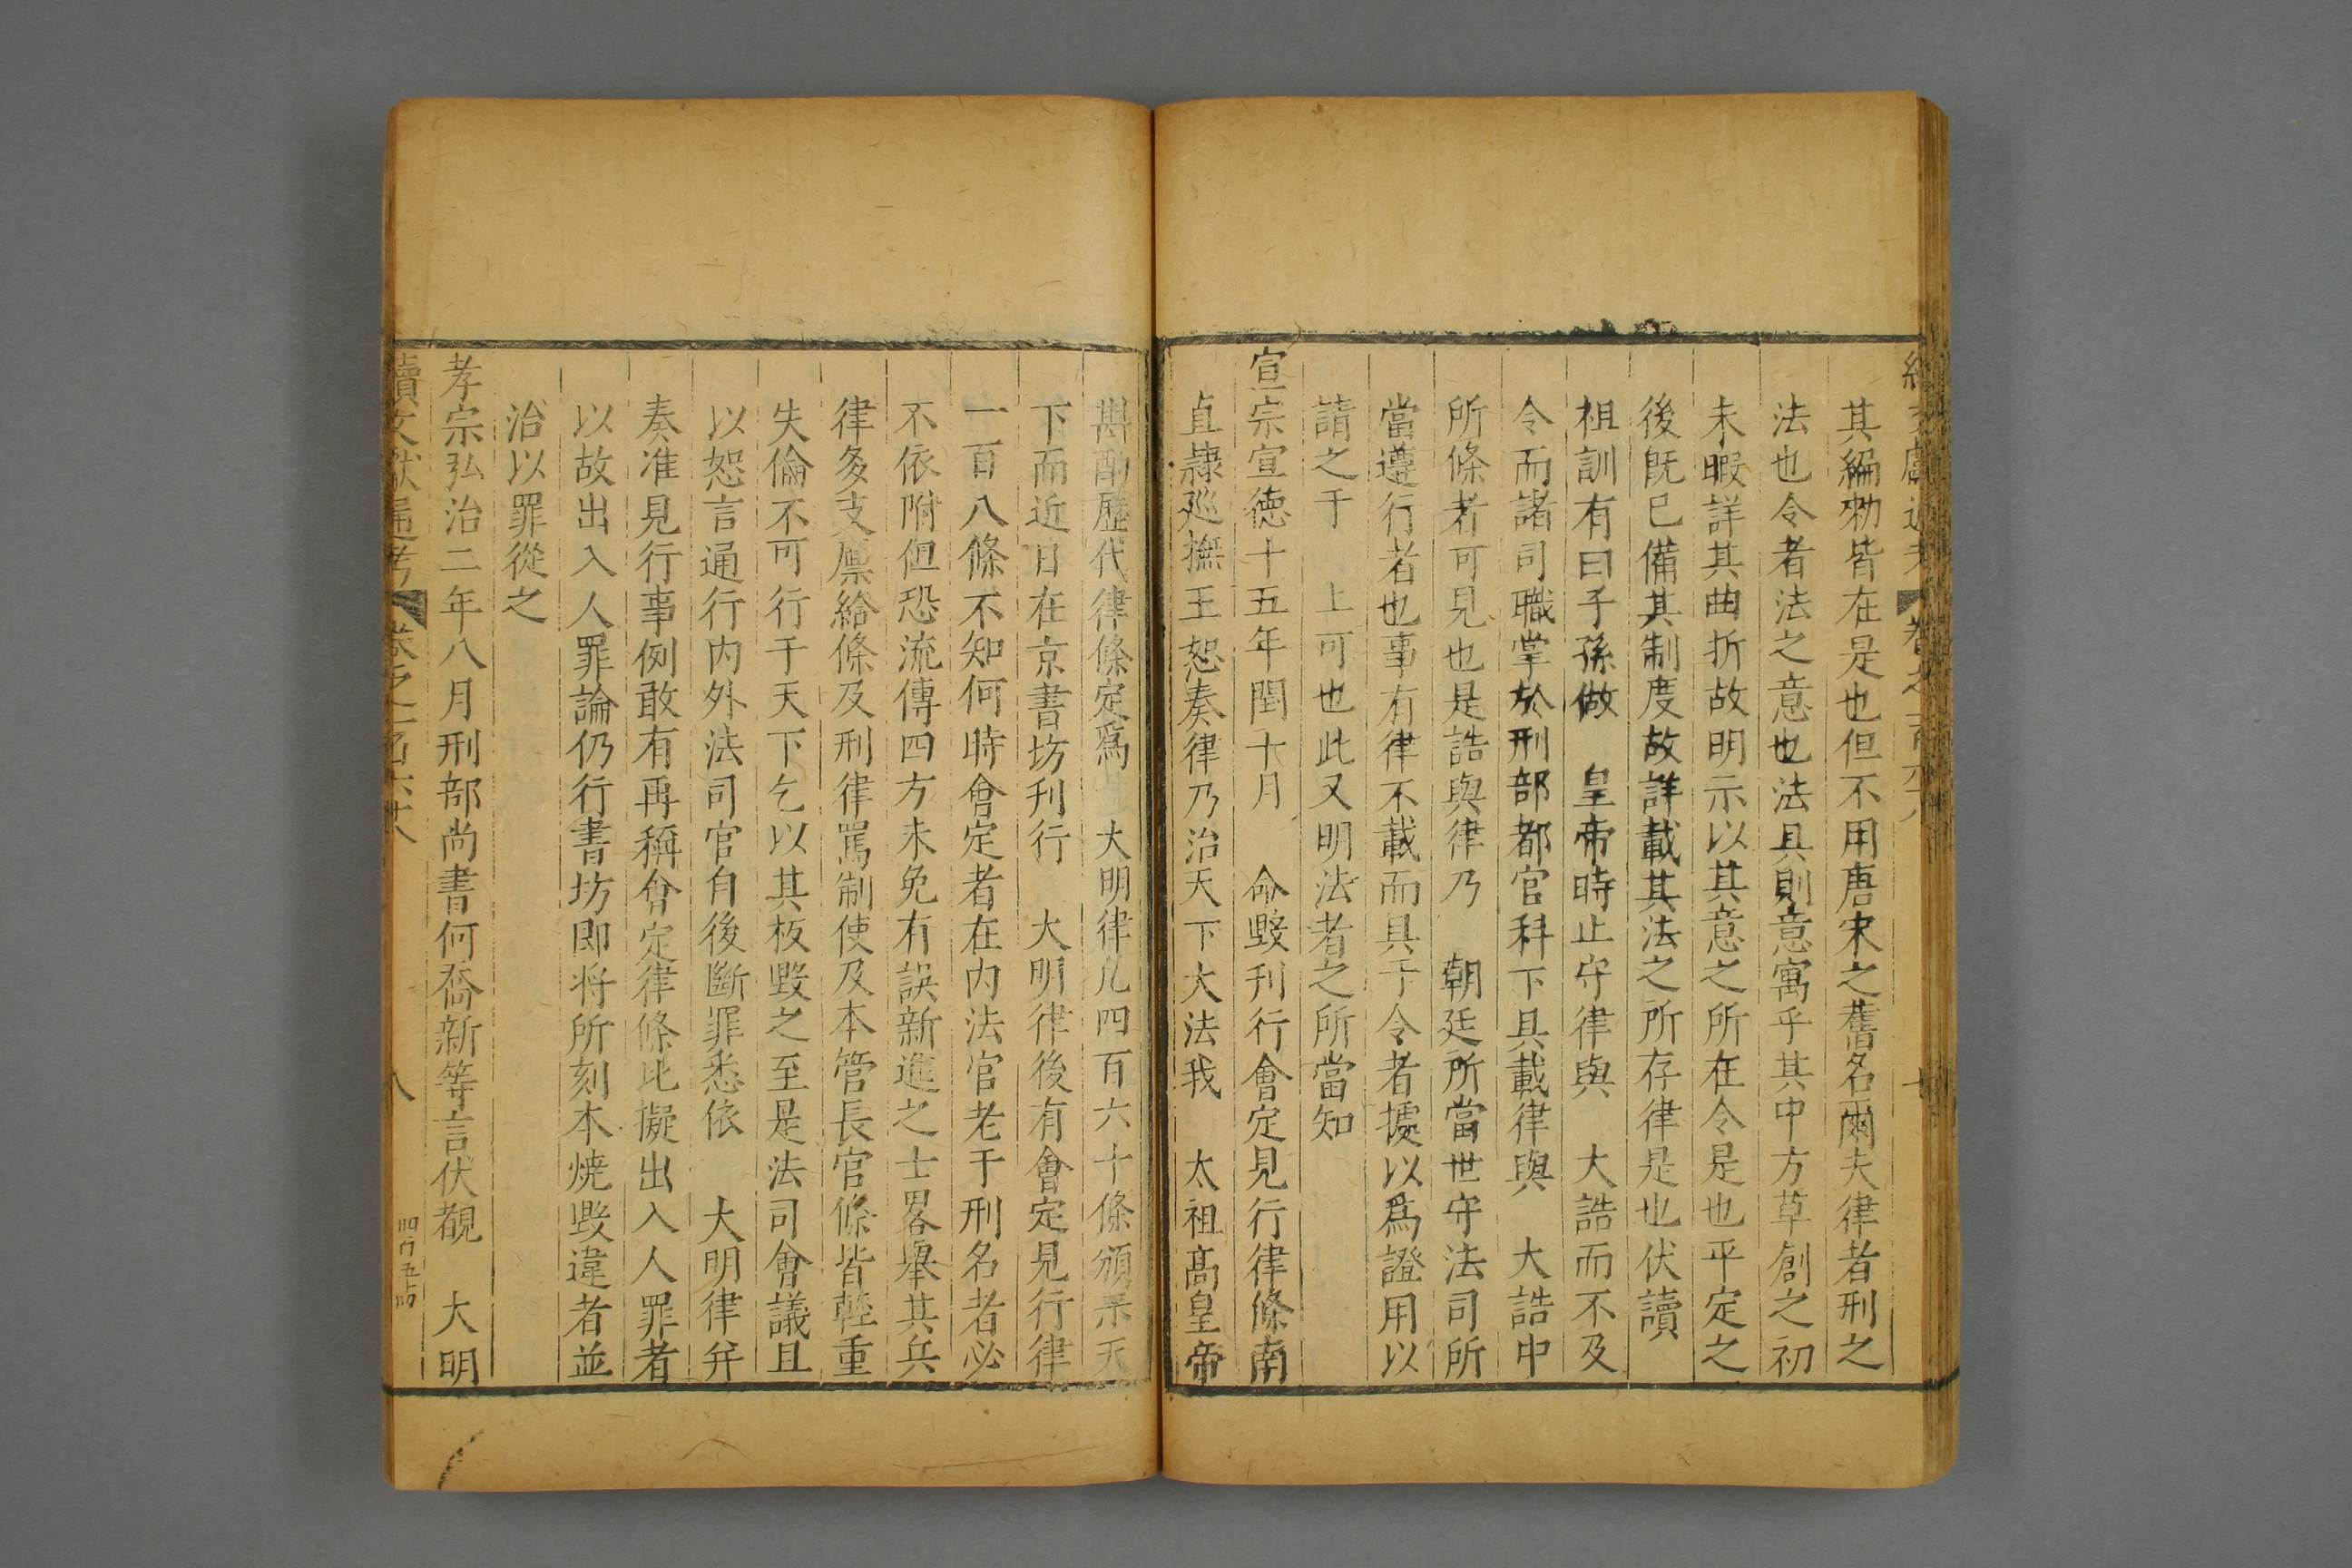 其編勑皆在是也但不用唐宋之舊名爾夫律者刑之
法也令者法之意也法具則意寓乎其中方草創之初
未暇詳其曲折故明示以其意之所在令是也平定之
後旣已備其制度故詳載其法之所存律是也伏讀
祖訓有曰子孫做 皇帝時止守律與 大誥而不及
令而諸司職掌於刑部都官科下具載律與 大誥中
所條者可見也是誥與律乃 朝廷所當世守法司所
當遵行者也事有律不載而具于令者據以爲證用以
請之于 上可也此又明法者之所當知
宣宗宣徳十五年閏十月 命毀刊行會定見行律條南
直隷廵撫王恕奏律乃治天下大法我 太祖高皇帝
斟酌歷代律條定爲 大明律凡四百六十條頒示天
下而近日在京書坊刋行 大明律後有會定見行律
一百八條不知何時會定者在内法官老于刑名者必
不依附但恐流傳四方未免有誤新進之士畧舉其兵
律多支廪給條及刑律罵制使及本管長官條皆輕重
失倫不可行于天下乞以其板毀之至是法司會議且
以恕言通行内外法司官自後斷罪悉依 大明律并
奏准見行事例敢有再稱會定律條比擬出入人罪者
以故出入人罪論仍行書坊即将所刻本焼毀違者並
治以罪從之
孝宗弘治二年八月刑部尚書何喬新等言伏覩 大明
續文獻通考 卷之一百六十八
八